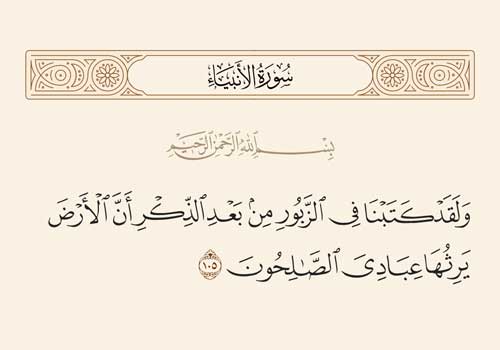 سُورَةُ الأَنبِيَاءِ
بِسْمِ اللَّهِ الرَّحْمَٰنِ الرَّحِيمِ
وَلَقَدْ كَتَبْنَا فِي الزَّبُورِ مِنۢ بَعْدِ الذِّكْرِ أَنَّ الْأَرْضَ
يَرِثُهَا عِبَادِيَ الصَّالِحُونَ ١٠٥